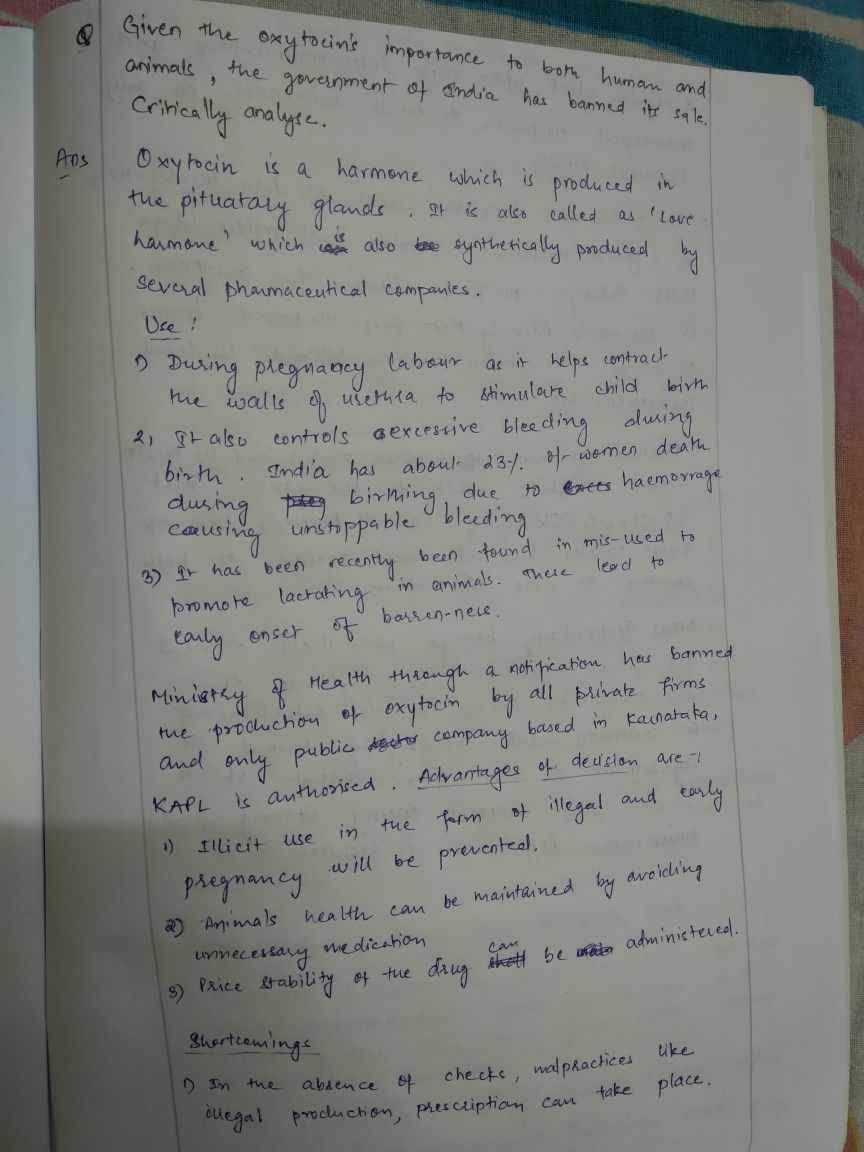 Q Given the oxytocin's importance to both human and
animals, the government of India has banned its sale.
Critically analyse.
Ans Oxytocin is a harmone which is produced in
the pituatary glands. It is also called as 'Love
harmone' which is also synthetically produced by
several pharmaceutical companies.
Use:
1) During pregnancy labour as it helps contract
the walls of urethra to stimulate child birth
2, It also controls excessive bleeding during
birth. India has about 23%. of women death
during birthing due to haemorrage
causing unstoppable bleeding
3) It has been recently been found in mis-used to
promote lactating in animals. These lead to
early onset of barren-ness.
Ministry of Health through a notification has banned
the production of oxytocin by all private firms
and only public company based in Karnataka,
KAPL is authorised. Advantages of decision are -
1) Illicit use in the form of illegal and early
pregnancy will be prevented.
2) Animals health can be maintained by avoiding
unnecessary medication
3) Price stability of the drug can be administered.
Shortcomings
1) In the absence of checks, malpractices like
illegal production, prescription can take place.